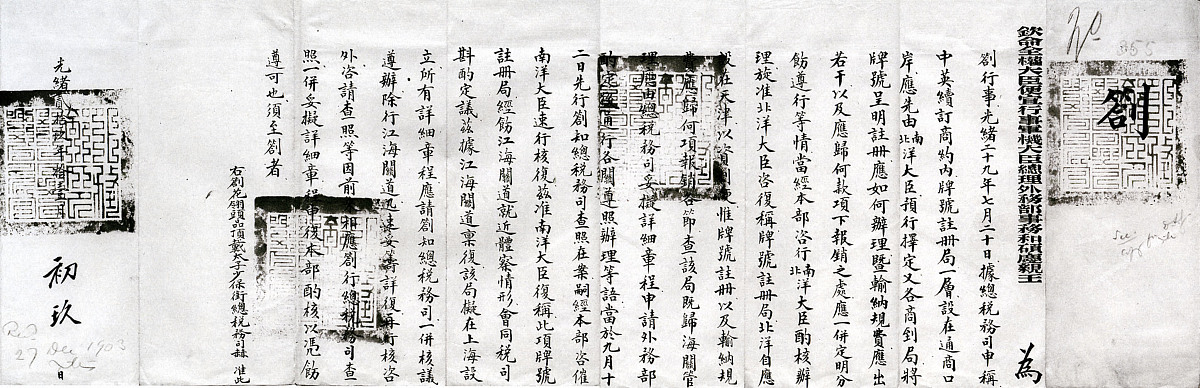 欽命全權大臣便宜行事軍機大臣總理外務部事務和碩慶親王
為
劄
劄行事光緒二十九年七月二十日據總稅務司申稱
中英續訂商約內牌號註冊局一層設在通商口
岸應先由南北洋大臣預行擇定又各商到局將
牌號呈明註冊應如何辦理暨輸納規費應出
若干以及應歸何款項下報銷之處應一併定明分
飭遵行等情當經本部咨行南北洋大臣酌核辦
理旋准北洋大臣咨復稱牌號註冊局北洋自應
設在天津以資 便惟牌號註冊以及輸納規
費應歸何項報銷各節查該局既歸海關管
理應由總稅務司妥擬詳細章程申請外務部
酌定通行各關遵照辦理等語當於九月十
二日先行劄知總稅務司查照在案嗣經本部咨催
南洋大臣速行核復茲准南洋大臣復稱此項牌號
註冊局經飭江海關道就近體察情形會同稅司
斟酌定議茲據江海關道稟復該局擬在上海設
立所有詳細章程應請劄知總稅務司一併核議
遵辦除行江海關道迅速妥籌詳復再行核咨
外咨請查照等因前 相應劄行總稅務司查
照一併妥擬詳細章程申復本部酌核以憑飭
遵可也須至劄者
右劄花翎頭品頂戴太子少保銜總稅務司赫 准此
光緒貳拾玖年 拾壹月
初玖
日
355
Rec
27 Dec 1903